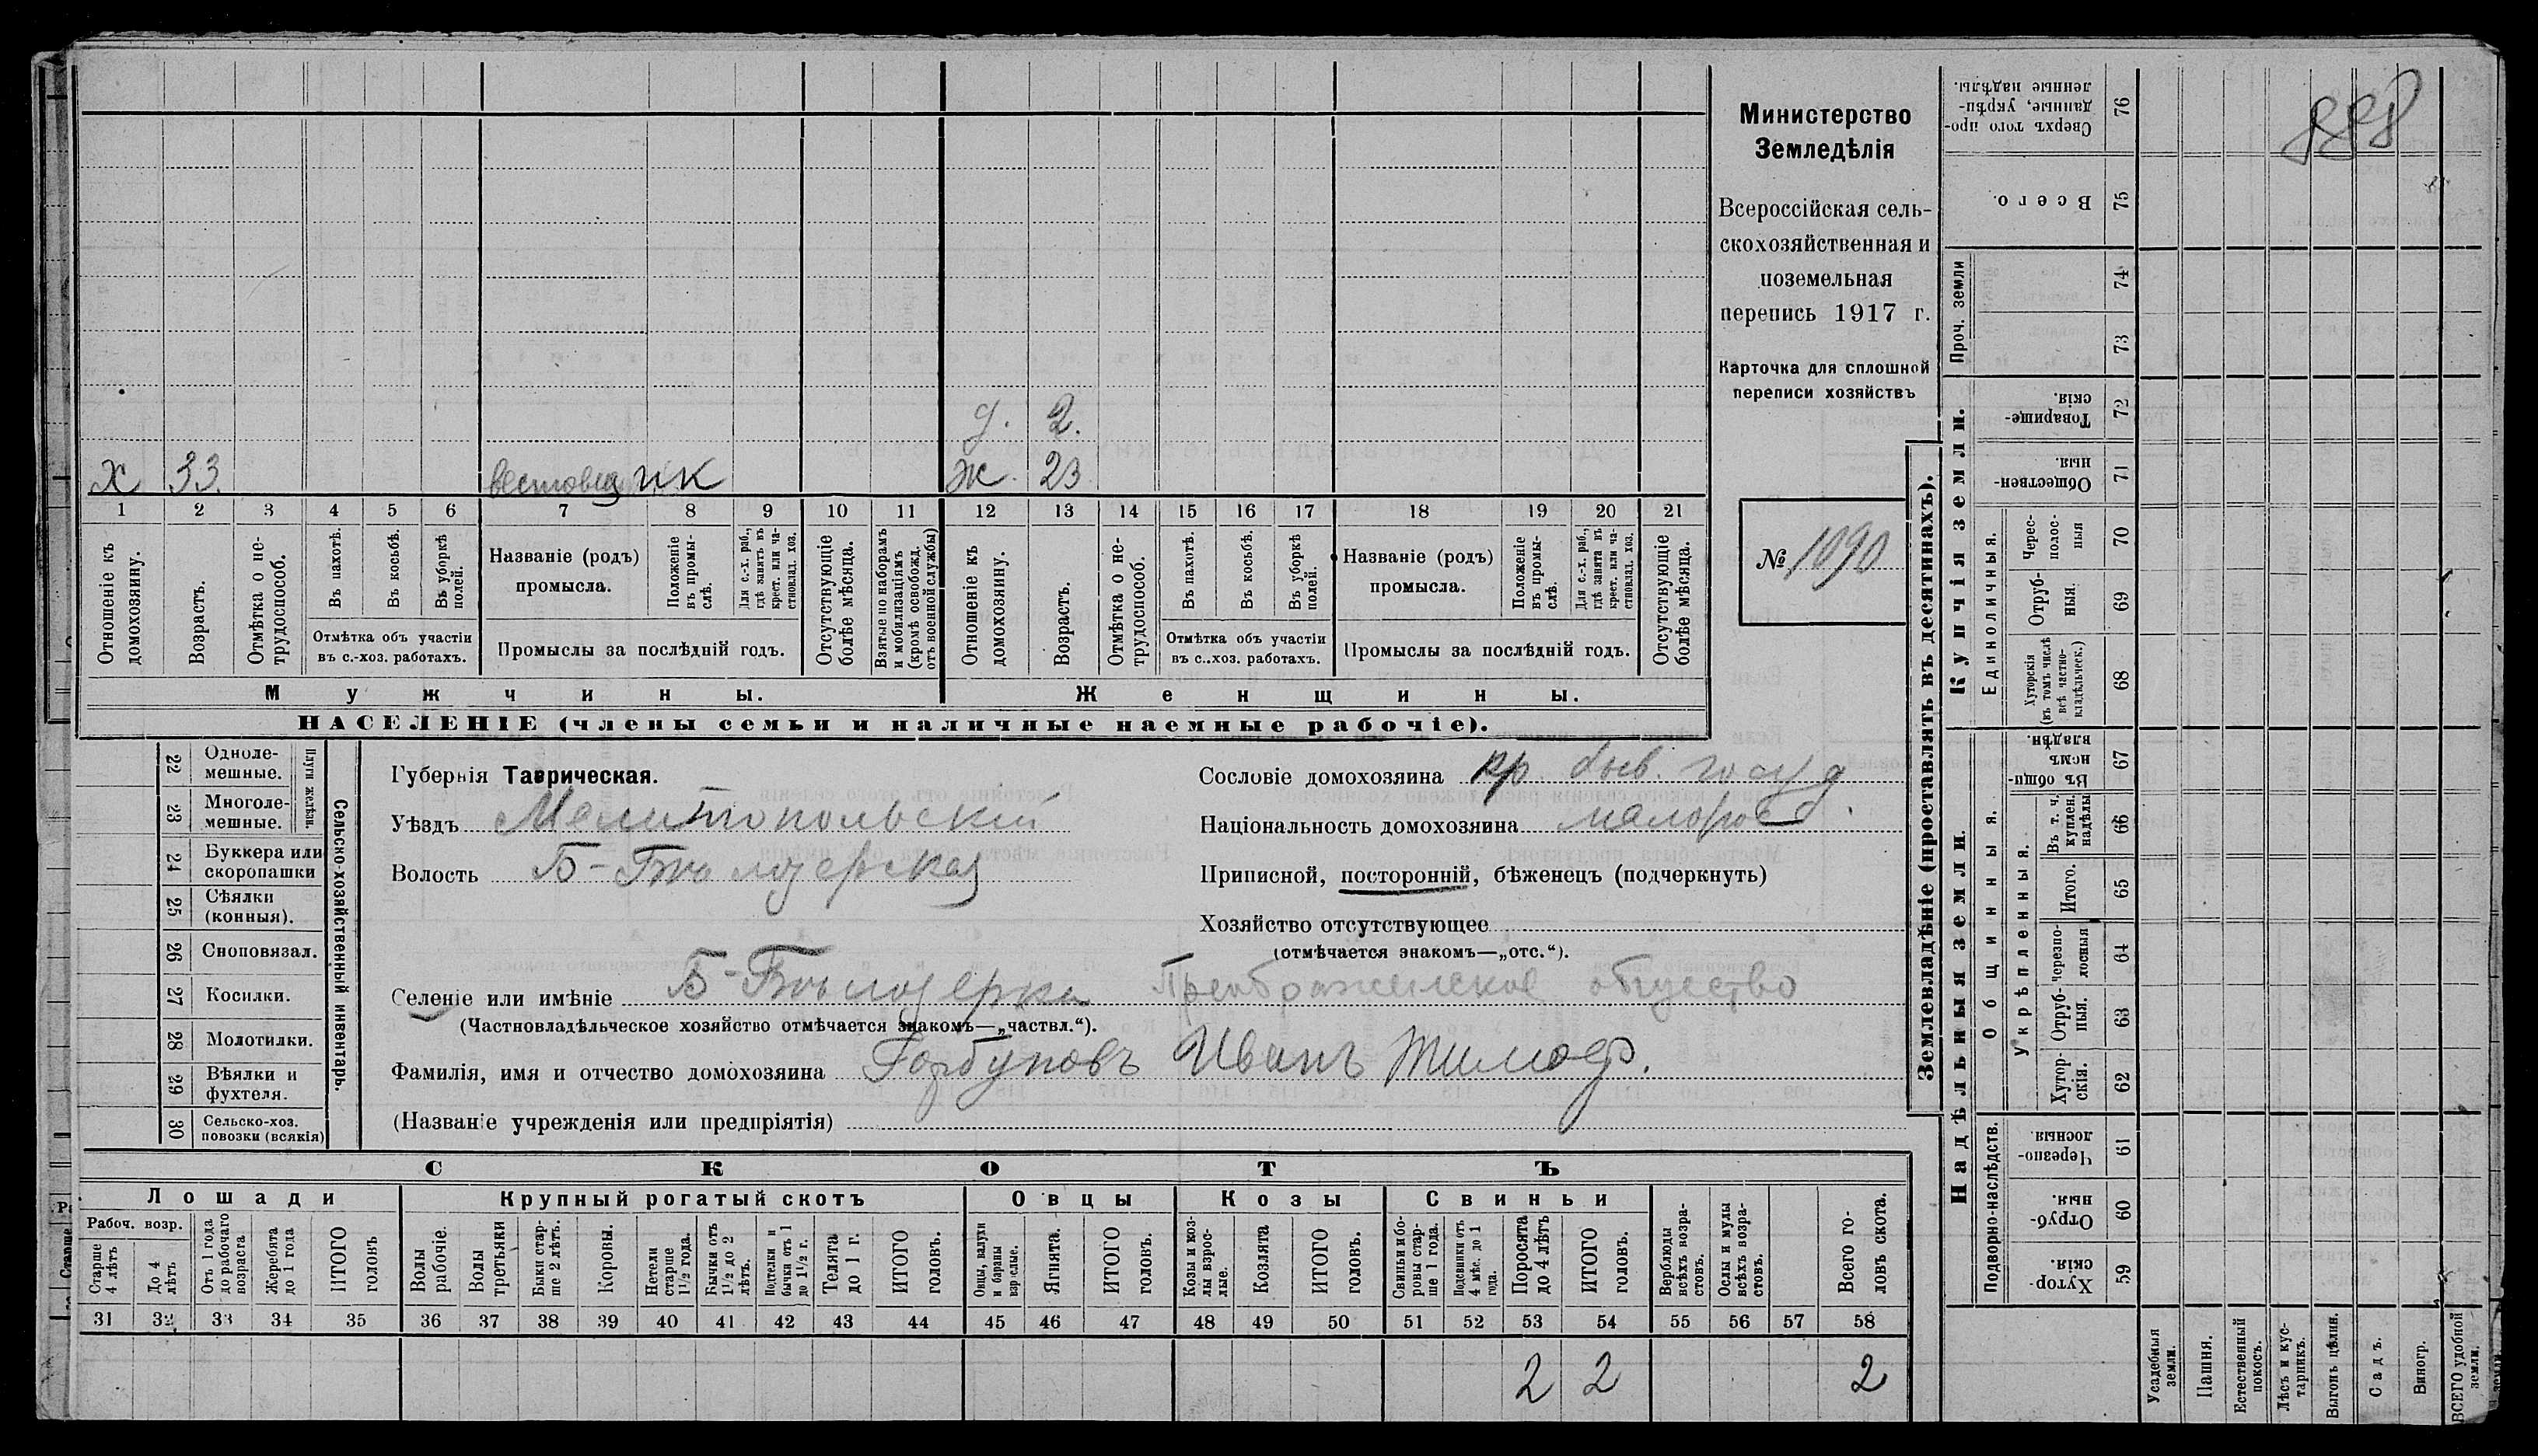 888
Министерство
Земледѣлія
Всероссійская сель-
скохозяйственная и
поземельная
перепись 1917 г.
Карточка для сплошной
переписи хозяйствъ
№ 1090
д. 2.
х 33 вестовщик ж. 23
1 2 3 4 5 6 7 8 9 10 11 12 13 14 15 16 17 18 19 20 21
Отношеніе къ домохозяину.
Возрастъ.
Отмѣтка о не-трудоспособ.
Въ пахотѣ.
Въ косьбѣ.
Въ уборкѣ полей.
Отмѣтка объ участіи
въ с.-хоз. работахъ.
Названіе (родъ)
промысла.
Положеніе въ промы-слѣ.
Для с.-х. раб., гдѣ занятъ въ крест. или ча-стновлад. хоз.
Промыслы за послѣдній годъ.
Отсутствующіе болѣе мѣсяца.
Взятые по наборамъ и мобилизаціямъ (кромѣ освобожд. отъ военной службы)
Отношеніе къ домохозяину.
Возрастъ.
Отмѣтка о не-трудоспособ.
Въ пахотѣ.
Въ косьбѣ.
Въ уборкѣ полей.
Отмѣтка объ участіи
въ с..хоз. работахъ.
Названіе (родъ)
промысла.
Положеніе въ промы-слѣ.
Для с.-х. раб., гдѣ занята въ крест. или ча-стновлад. хоз.
Промыслы за послѣдній годъ.
Отсутствующіе болѣе мѣсяца.
Мужчины. Женщины.
НАСЕЛЕНІЕ (члены семьи и наличные наемные рабочіе).
Сельско-хозяйственный инвентарь.
Плуги желѣзн.
22 Одноле-мешные.
23 Многоле-мешные.
24 Буккера или скоропашки
25 Сѣялки (конныя).
26 Сноповязал.
27 Косилки.
28 Молотилки.
29 Вѣялки и фухтеля.
30 Сельско-хоз. повозки (всякія)
Губернія Таврическая.
Уѣздъ Мелитопольскій
Волость Б-Бѣлозерская
Сословіе домохозяина кр. быв. госуд.
Національность домохозяина малоросс
Приписной, посторонній, бѣженецъ (подчеркнуть)
Хозяйство отсутствующее
(отмѣчается знакомъ—„отс.“).
Селеніе или имѣніе Б-Бѣлозерка Преображенское общество
(Частновладѣльческое хозяйство отмѣчается знакомъ—„частвл.“).
Фамилія, имя и отчество домохозяина Горбуновъ Иванъ Тимоф.
(Названіе учрежденія или предпріятія)
СКОТЪ
Лошади Крупный рогатый скотъ Овцы Козы Свиньи
Рабоч. возр.
Старше 4 лѣтъ
До 4 лѣтъ
Отъ 1 года до рабочаго возраста
Жеребята до 1 года
ИТОГО головъ
Волы рабочіе.
Волы третьяки
Быки стар-ше 2 лѣтъ.
Коровы.
Нетели старше 1½ года.
Бычки отъ 1½ до 2 лѣтъ.
Подтелки и бычки отъ 1 до 1½ г.
Телята до 1 г.
ИТОГО головъ.
Овцы, валухи и бараны взрослые.
Ягнята.
ИТОГО головъ.
Козы и коз-лы взрос-лые.
Козлята
ИТОГО головъ.
Свиньи и бо-ровы стар-ше 1 года.
Подсвинки отъ 4 мѣс. до 1 года.
Поросята до 4 лѣтъ
ИТОГО головъ.
Верблюды всѣхъ возра-стовъ.
Ослы и мулы всѣхъ возра-стовъ.
Всего го-ловъ скота.
31 32 33 34 35 36 37 38 39 40 41 42 43 44 45 46 47 48 49 50 51 52 53 54 55 56 57 58
2 2 2
Землевладѣніе (проставлять въ десятинахъ).
Купчія земли.
Надѣльныя земли.
Сверхъ того про-данные, укрѣп-ленные надѣлы. 76
Всего. 75
Проч. земли 74 73
Товарище-скія. 72
Обществен-ныя. 71
Единоличныя.
Черес-полос-ныя 70
Отруб-ныя. 69
Хуторскія (въ томъ числѣ всѣ частно-владѣльческ.) 68
Общинныя.
Въ общи-немъ владѣн. 67
Укрѣпленныя.
Въ т. ч. куплен. надѣлы 66
Итого. 65
черезпо-лосныя 64
Отруб-ныя. 63
Хутор-скія. 62
Подворно-наслѣдств.
Черезпо-лосныя. 61
Отруб-ныя. 60
Хутор-скія. 59
Усадебныя земли.
Пашня.
Естественный покосъ.
Лѣсъ и кус-тарникъ.
Выгонъ цѣлин.
Садъ.
Виногр.
ВСЕГО удобной земли.